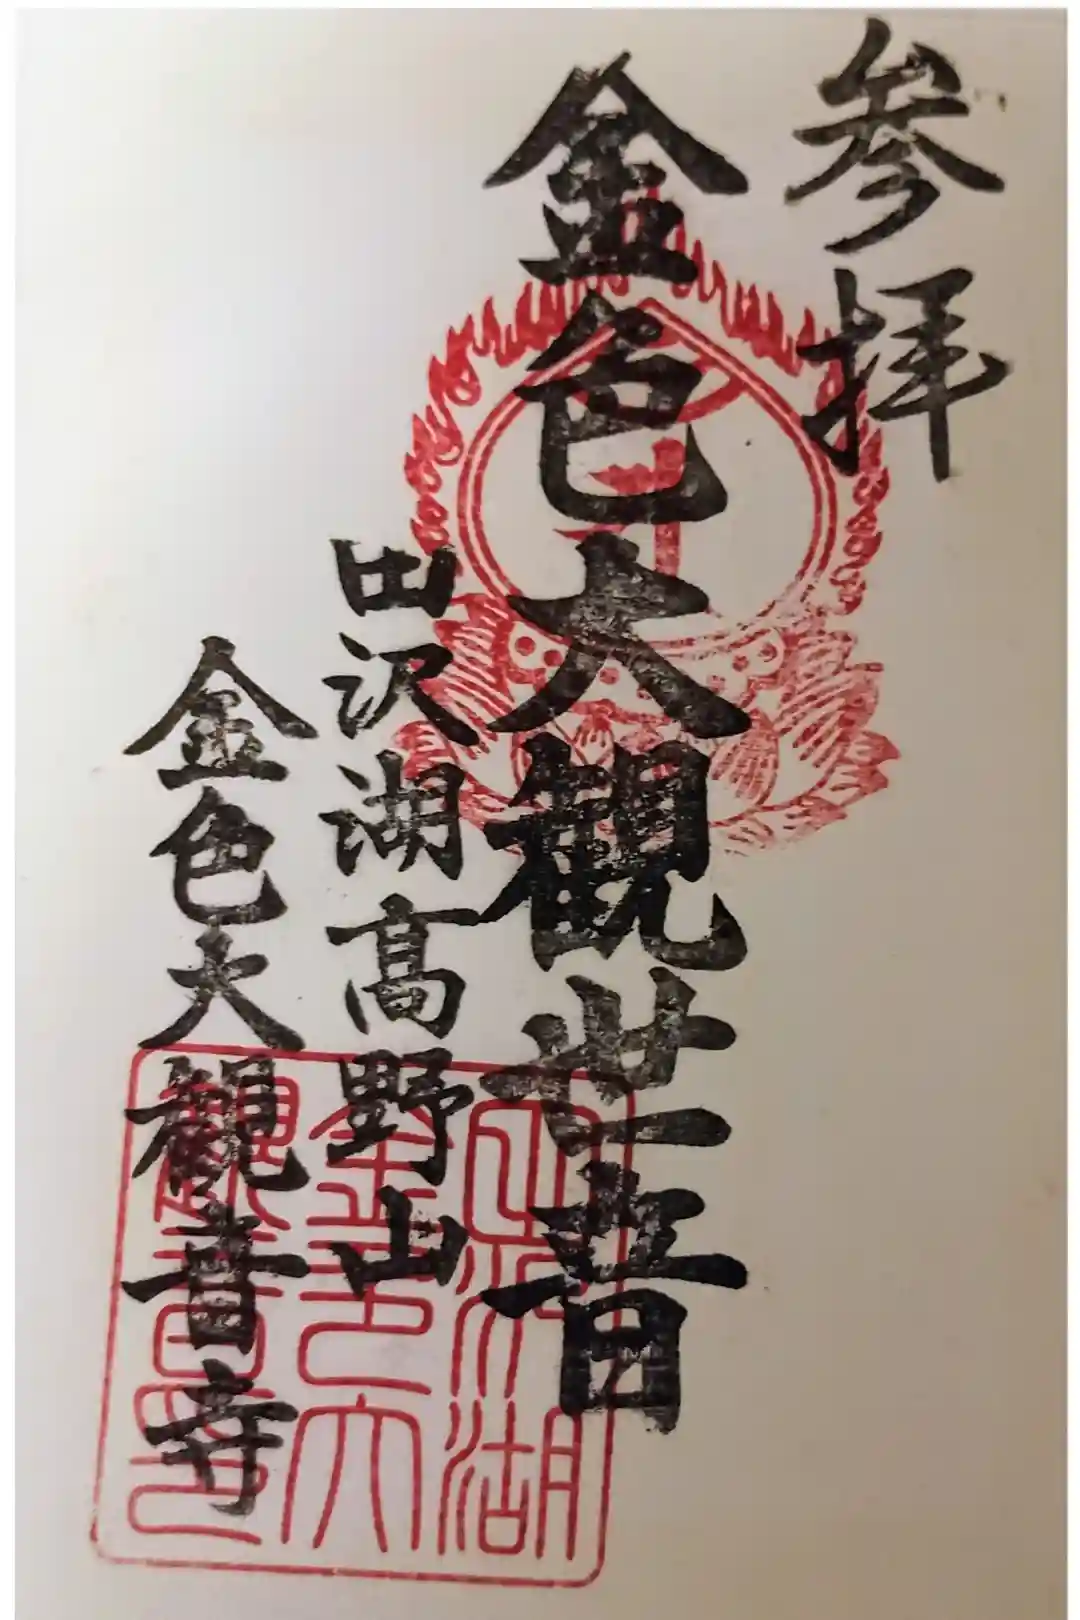 参拝
金色大観世音
田沢湖高野山
金色大観音寺
田沢湖
金色大